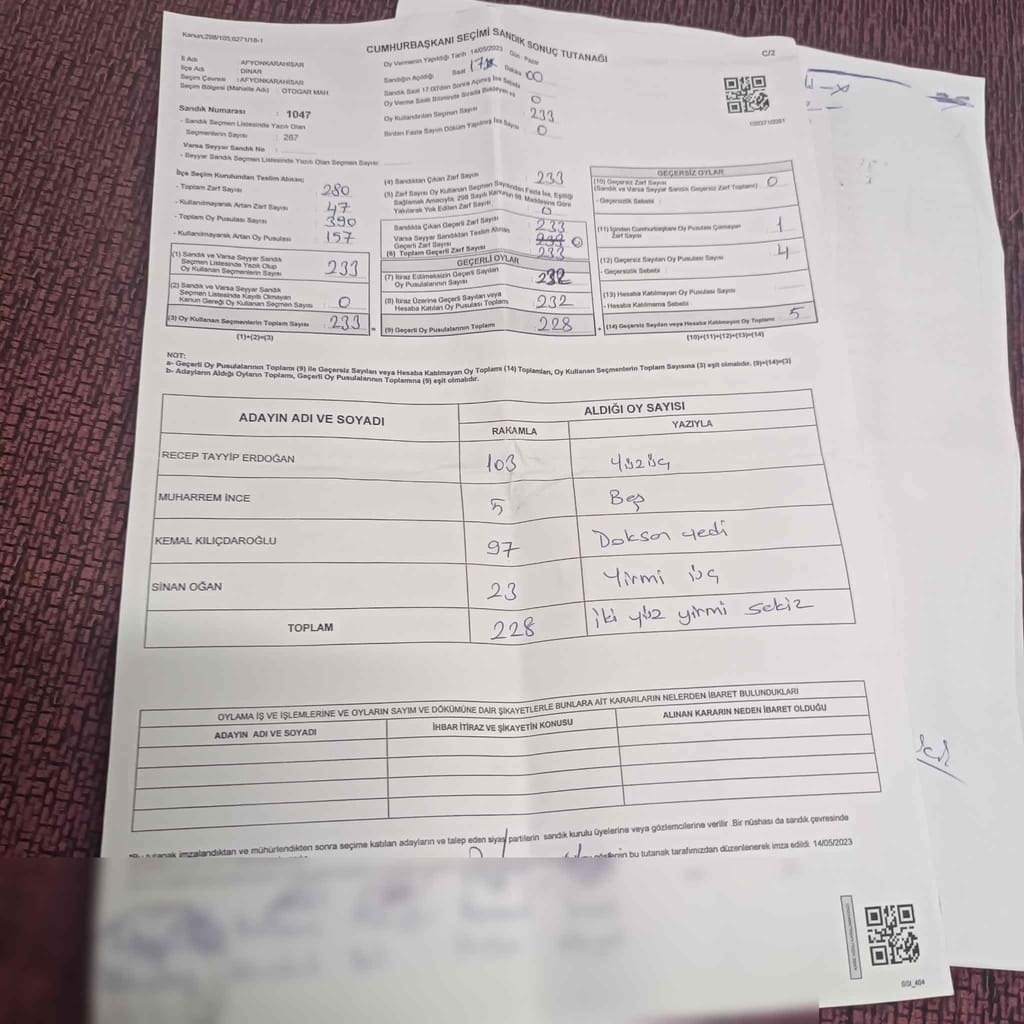 Kanun;298/105,6271/18-1
CUMHURBAŞKANI SEÇİMİ SANDIK SONUÇ TUTANAĞI
C/2
İl Adı : AFYONKARAHİSAR
İlçe Adı : DİNAR
Seçim Çevresi : AFYONKARAHİSAR
Seçim Bölgesi (Mahalle Adı) OTOGAR MAH
Oy Vermenin Yapıldığı Tarih : 14/05/2023 Gün : Pazar
Sandığın Açıldığı Saat 17 Dakika 00
Sandık Saat 17:00'den Sonra Açılmış İse Sebebi
Oy Verme Saati Bitiminde Sırada Bekleyen 0
Oy Kullandırılan Seçmen Sayısı 233
Birden Fazla Sayım Döküm Yapılmış İse Sayısı 0
Sandık Numarası : 1047
- Sandık Seçmen Listesinde Yazılı Olan
Seçmenlerin Sayısı : 267
Varsa Seyyar Sandık No :
- Seyyar Sandık Seçmen Listesinde Yazılı Olan Seçmen Sayısı
İlçe Seçim Kurulundan Teslim Alınan;
- Toplam Zarf Sayısı 280
- Kullanılmayarak Artan Zarf Sayısı 47
- Toplam Oy Pusulası Sayısı 390
- Kullanılmayarak Artan Oy Pusulası 157
(1) Sandık ve Varsa Seyyar Sandık
Seçmen Listesinde Yazılı Olup
Oy Kullanan Seçmenlerin Sayısı : 233
(2) Sandık ve Varsa Seyyar Sandık
Seçmen Listesinde Kayıtlı Olmayan
Kanun Gereği Oy Kullanan Seçmen Sayısı : 0
(3) Oy Kullanan Seçmenlerin Toplam Sayısı : 233 =
(1)+(2)=(3)
(4) Sandıktan Çıkan Zarf Sayısı 233
(5) Zarf Sayısı Oy Kullanan Seçmen Sayısından Fazla İse, Eşitliği
Sağlamak Amacıyla, 298 Sayılı Kanunun 98. Maddesine Göre
Yakılarak Yok Edilen Zarf Sayısı 0
Sandıkta Çıkan Geçerli Zarf Sayısı 233
Varsa Seyyar Sandıktan Teslim Alınan
Geçerli Zarf Sayısı 0
(6) Toplam Geçerli Zarf Sayısı 233
GEÇERLİ OYLAR
(7) İtiraz Edilmeksizin Geçerli Sayılan
Oy Pusulalarının Sayısı : 232
(8) İtiraz Üzerine Geçerli Sayılan veya
Hesaba Katılan Oy Pusulası Toplam : 232
(9) Geçerli Oy Pusulalarının Toplamı 228 +
GEÇERSİZ OYLAR
(10) Geçersiz Zarf Sayısı
(Sandık ve Varsa Seyyar Sandık Geçersiz Zarf Toplamı) 0
- Geçersizlik Sebebi :
(11) İçinden Cumhurbaşkanı Oy Pusulası Çıkmayan
Zarf Sayısı 1
(12) Geçersiz Sayılan Oy Pusulası Sayısı 4
- Geçersizlik Sebebi :
(13) Hesaba Katılmayan Oy Pusulası Sayısı
- Hesaba Katılmama Sebebi :
(14) Geçersiz Sayılan veya Hesaba Katılmayan Oy Toplamı 5
(10)+(11)+(12)+(13)=(14)
NOT:
a- Geçerli Oy Pusulalarının Toplamı (9) ile Geçersiz Sayılan veya Hesaba Katılmayan Oy Toplamı (14) Toplamları, Oy Kullanan Seçmenlerin Toplam Sayısına (3) eşit olmalıdır. (9)+(14)=(3)
b- Adayların Aldığı Oyların Toplamı, Geçerli Oy Pusulalarının Toplamına (9) eşit olmalıdır.
ADAYIN ADI VE SOYADI ALDIĞI OY SAYISI
RAKAMLA YAZIYLA
RECEP TAYYİP ERDOĞAN 103 Yüzüç
MUHARREM İNCE 5 Beş
KEMAL KILIÇDAROĞLU 97 Doksan yedi
SİNAN OĞAN 23 Yirmi üç
TOPLAM 228 İki yüz yirmi sekiz
OYLAMA İŞ VE İŞLEMLERİNE VE OYLARIN SAYIM VE DÖKÜMÜNE DAİR ŞİKAYETLERLE BUNLARA AİT KARARLARIN NELERDEN İBARET BULUNDUKLARI
ADAYIN ADI VE SOYADI İHBAR İTİRAZ VE ŞİKAYETİN KONUSU ALINAN KARARIN NEDEN İBARET OLDUĞU
tutanak imzalandıktan ve mühürlendikten sonra seçime katılan adayların ve talep eden siyasi partilerin sandık kurulu üyelerine veya gözlemcilerine verilir .Bir nüshası da sandık çevresinde
bu tutanak tarafımızdan düzenlenerek imza edildi. 14/05/2023